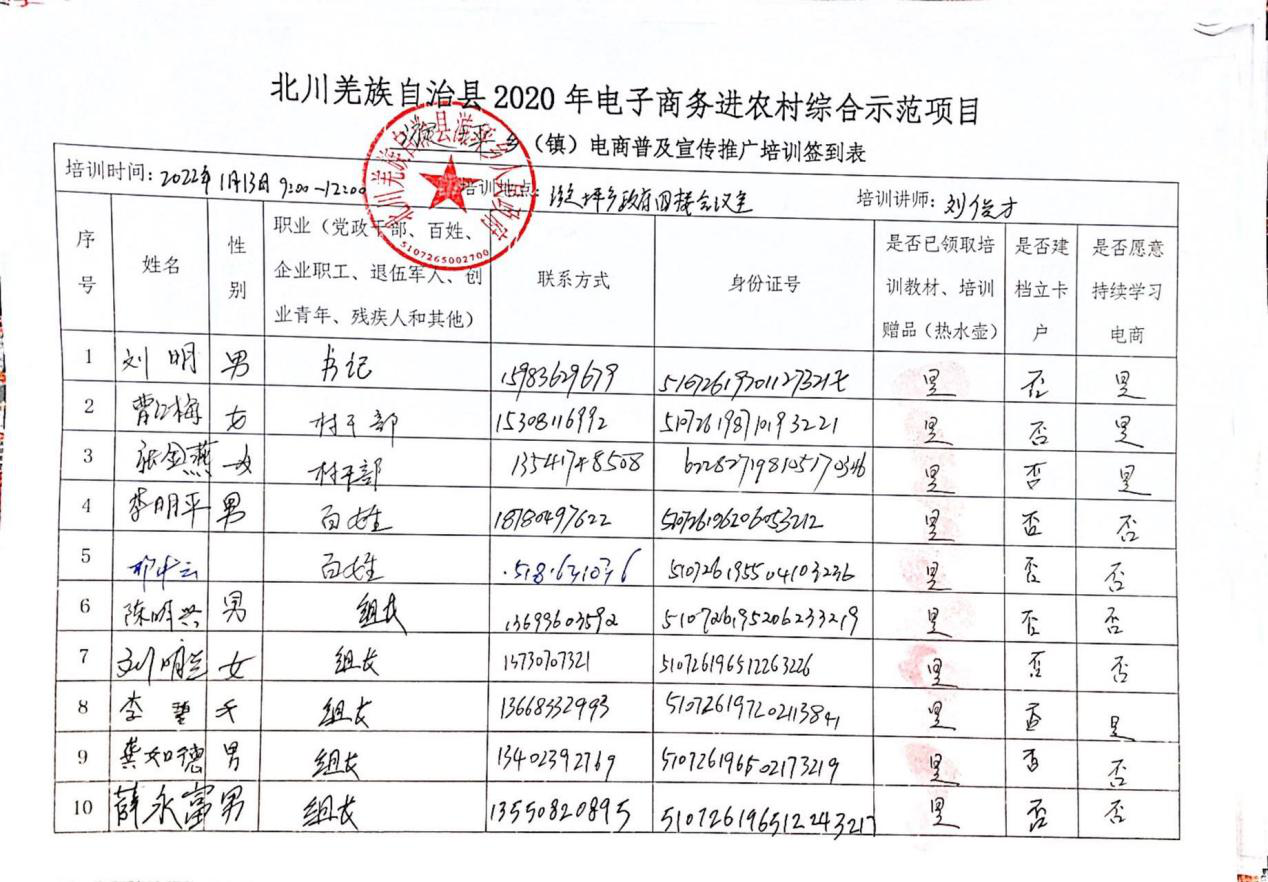 北川羌族自治县2020年电子商务进农村综合示范项目
漩坪乡（镇）电商普及宣传推广培训签到表
培训时间：2022年1月13日 9:00-12:00 培训地点：漩坪乡政府四楼会议室 培训讲师：刘俊才
序号 姓名 性别 职业（党政干部、百姓、企业职工、退伍军人、创业青年、残疾人和其他） 联系方式 身份证号 是否已领取培训教材、培训赠品（热水壶） 是否建档立卡户 是否愿意持续学习电商
1 刘明 男 书记 15983629679 是 否 是
2 曹红梅 女 村干部 15308116992 510726198710193221 是 否 是
3 张金燕 女 村干部 13541748508 是 否 是
4 李明平 男 百姓 18780497622 510726196206053212 是 否 否
5 百姓 510726195504103236 是 否 否
6 陈明兴 男 组长 13699603592 510726195206233219 是 否 否
7 刘明兰 女 组长 510726196512263226 是 否 否
8 李 组长 13668332993 是 否 是
9 龚如德 男 组长 13402392769 510726196502173219 是 否 否
10 薛永富 男 组长 13550820895 510726196512243217 是 否 否
北川羌族自治县漩坪乡人民政府
5107265002700